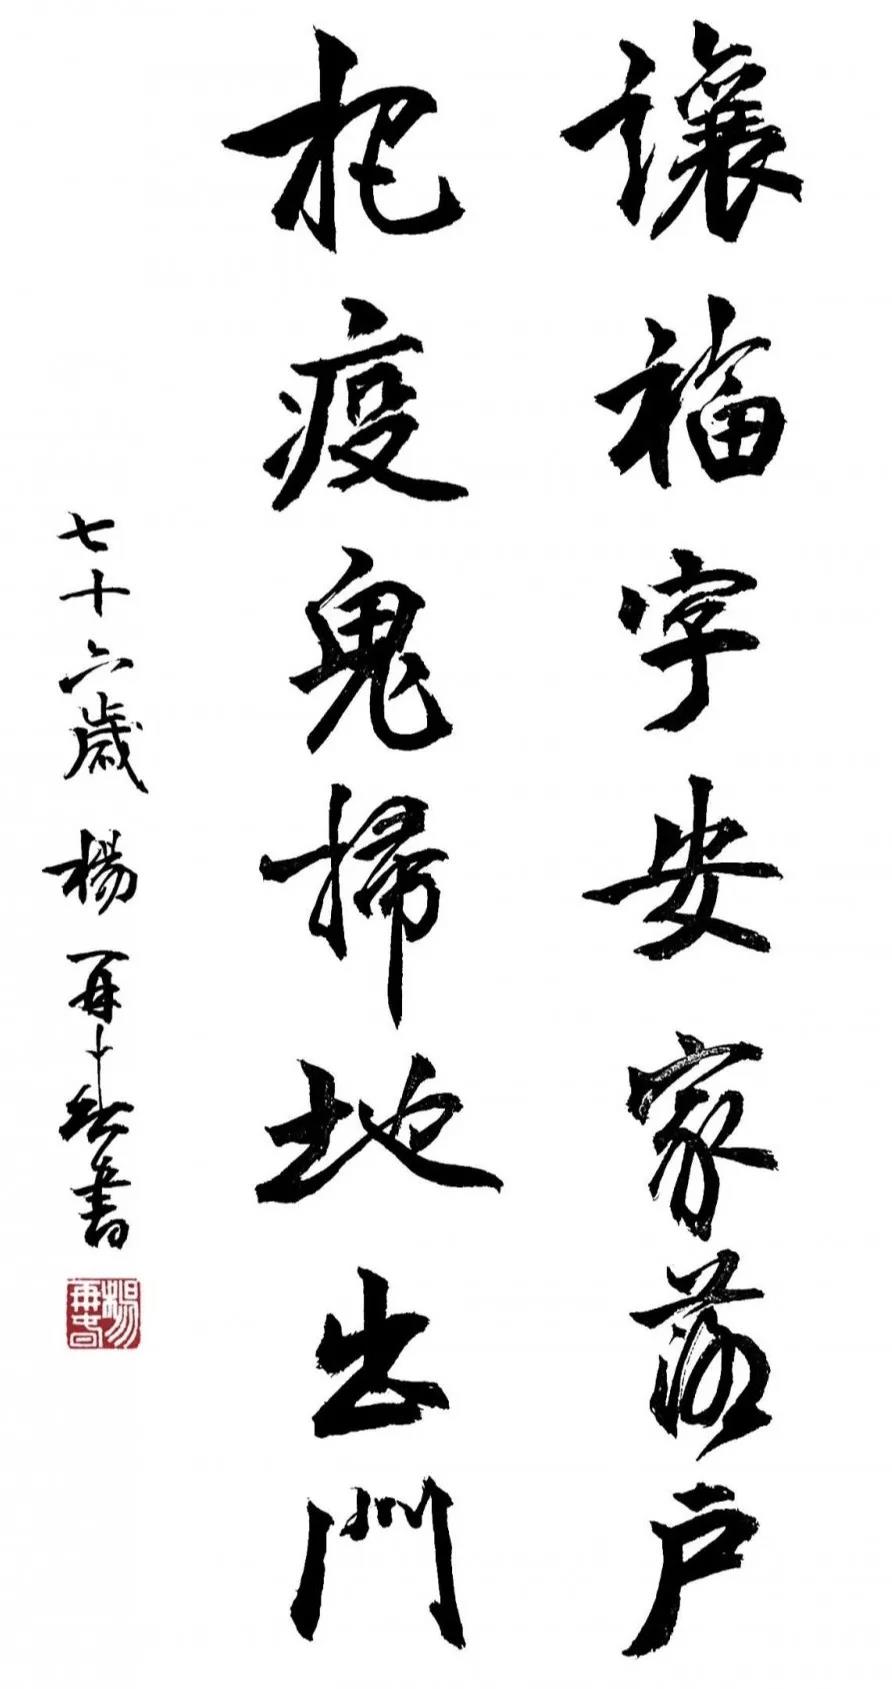 讓福字安家落户
把疫鬼掃地出門
七十六歲楊再春書
楊再春